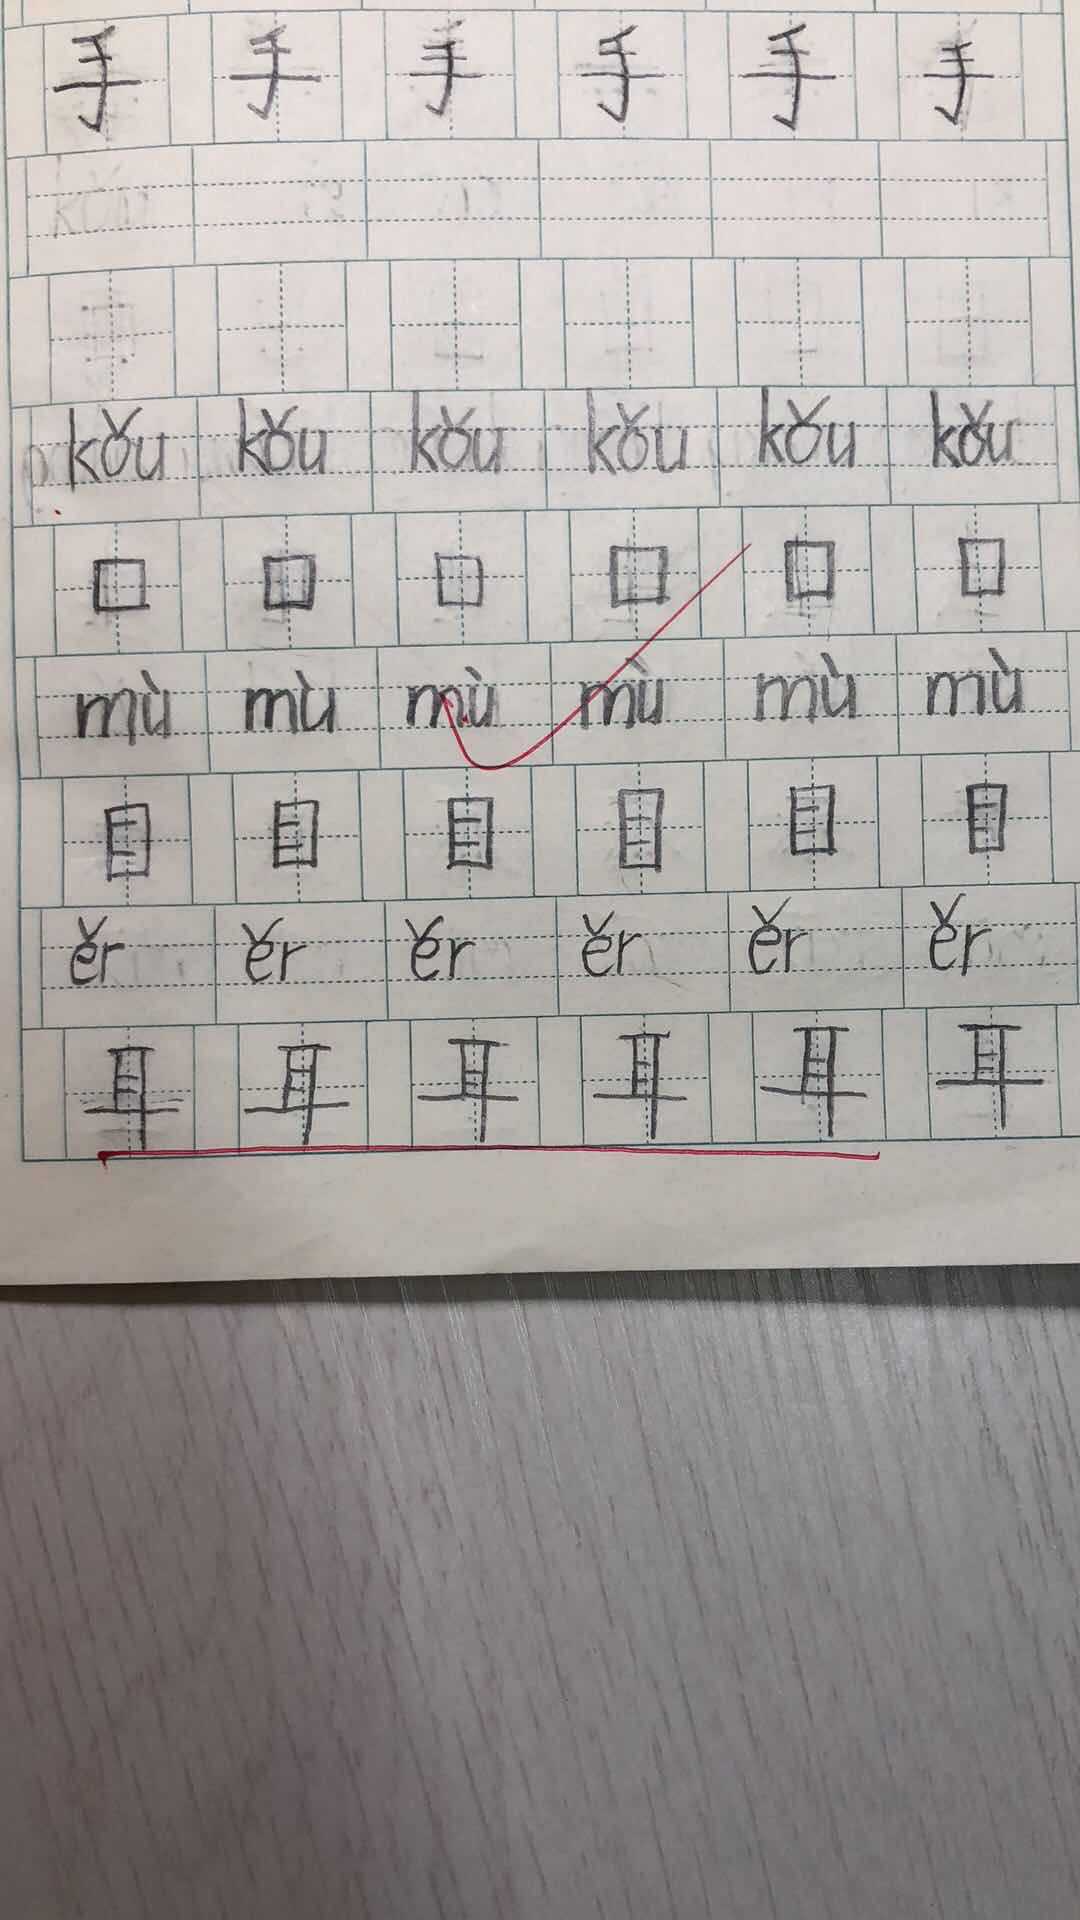 手 手 手 手 手 手
kǒu kǒu kǒu kǒu kǒu kǒu
口 口 口 口 口 口
mù mù mù mù mù mù
目 目 目 目 目 目
ěr ěr ěr ěr ěr ěr
耳 耳 耳 耳 耳 耳